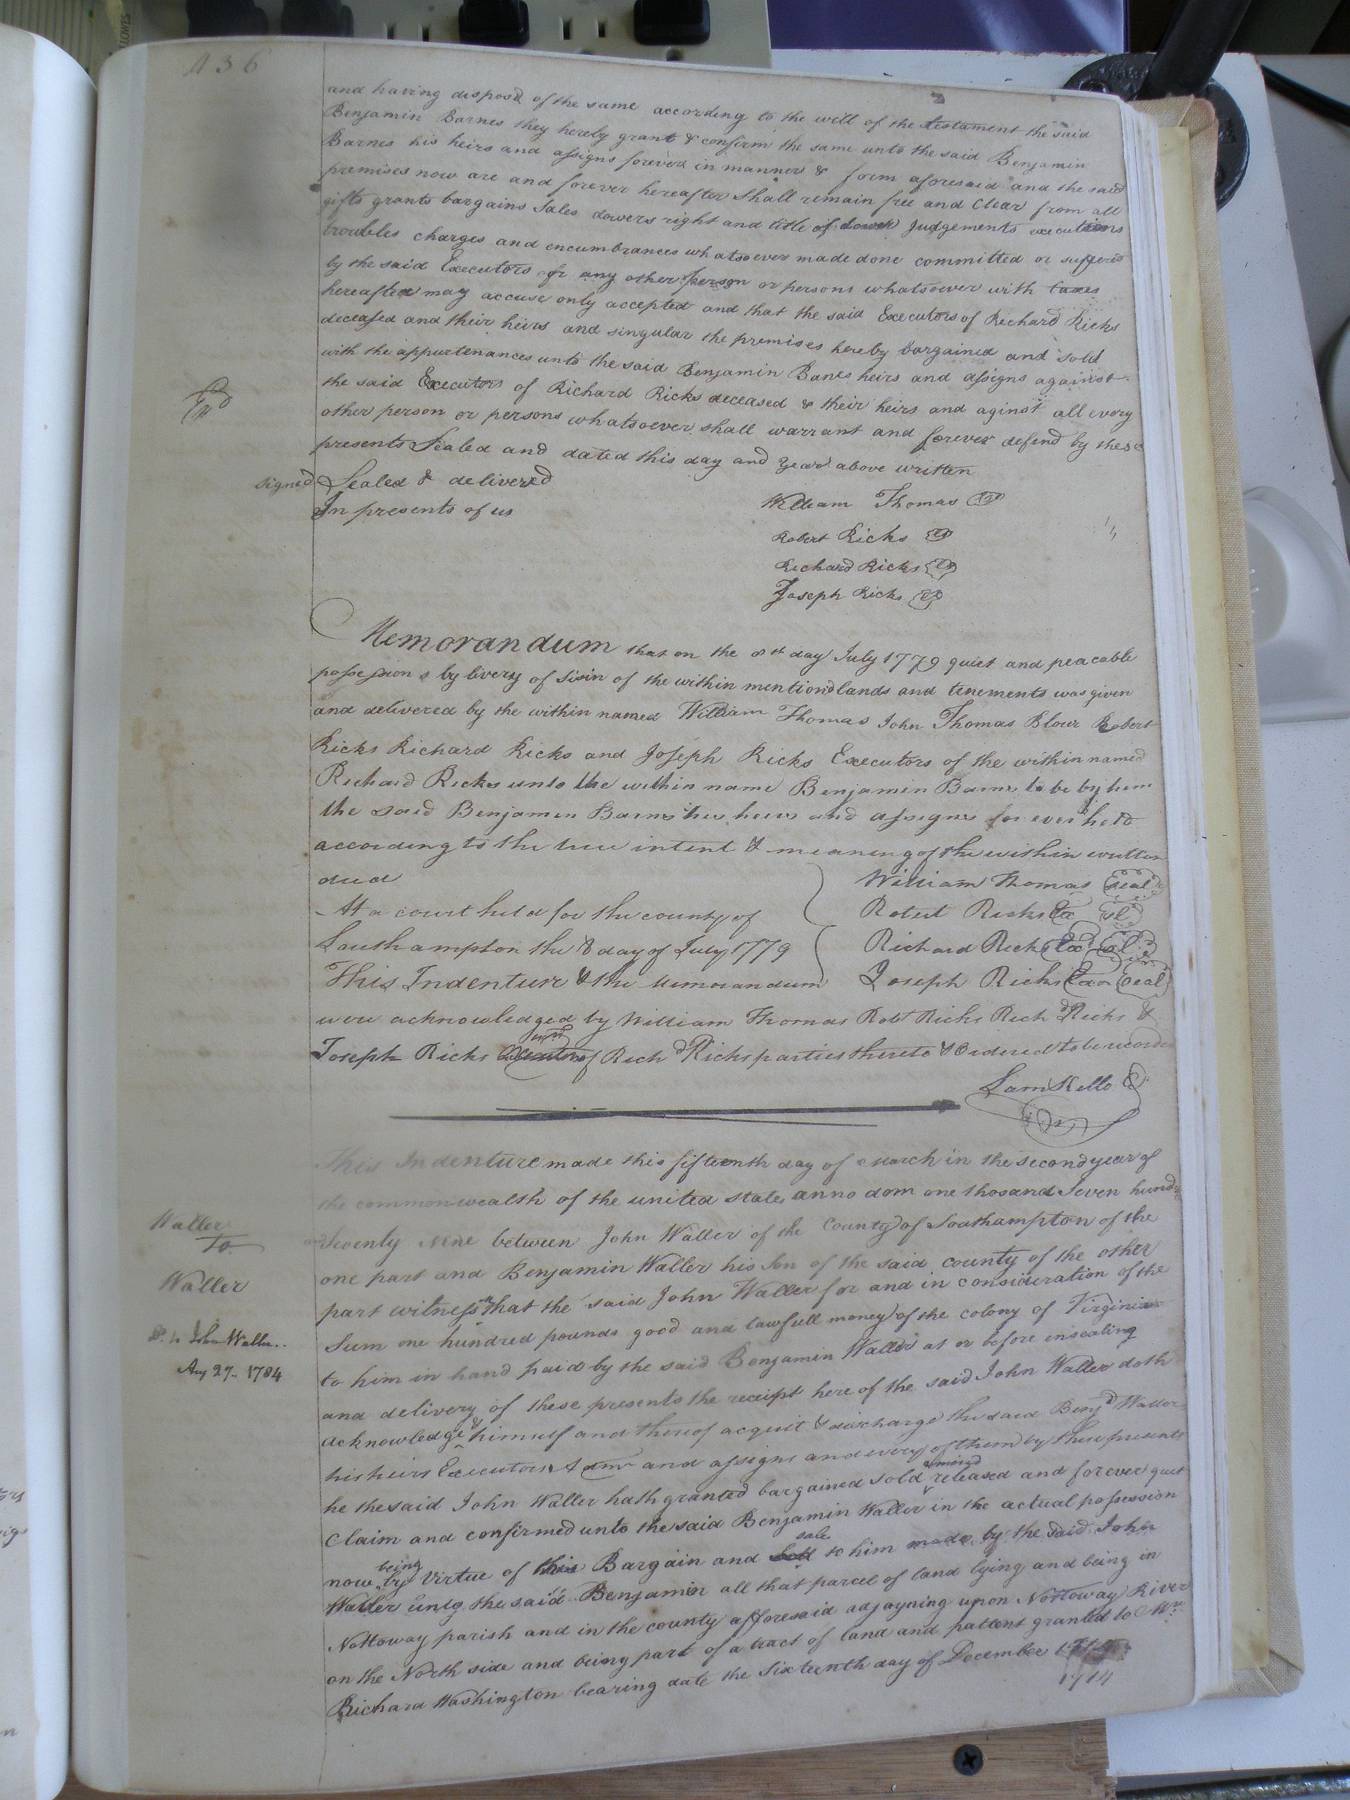 436
and having disposd of the same according to the will of the testament the said
Benjamin Barnes they hereby grant & confirm the same unto the said Benjamin
Barnes his heirs and assigns forever in manner & form aforesaid and the said
premises now are and forever hereafter Shall remain free and Clear from all
gifts grants bargains Sales dowers right and title of dower Judgements executions
troubles charges and encumbrances whatsoever made done committed or suffered
by the said Executors or any other person or persons whatsoever with taxes
hereafter may accuse only accepted and that the said Executors of Richard Ricks
deceased and their heirs and singular the premises hereby bargained and sold
with the appurtenances unto the said Benjamin Banes heirs and assigns against
the said Executors of Richard Ricks deceased & their heirs and aginst all every
other person or persons whatsoever shall warrant and forever defend by these
presents Sealed and dated this day and year above written
signed Sealed & delivered
In presents of us
William Thomas
Robert Ricks
Richard Ricks
Joseph Ricks
Memorandum that on the 8th day July 1779 quiet and peacable
possession by livery of Sisin of the within mentiond lands and tenements was given
and delivered by the within named William Thomas John Thomas Blow Robert
Ricks Richard Ricks and Joseph Ricks Executors of the within named
Richard Ricks unto the within name Benjamin Barns to be by him
the said Benjamin Barns his heirs and assigns for ever held
according to the true intent & meaning of the within written
deed
William Thomas seal
At a court held for the county of
Robert Ricks Ex sl
Southampton the 8 day of July 1779
Richard Ricks Ex sl
This Indenture & the Memorandum
Joseph Ricks Exor seal
were acknowledged by William Thomas Robt Ricks Richd Ricks &
Joseph Ricks of Richd Ricks parties thereto & Ordered to be recorded
Sam Kello C
This Indenture made this fifteenth day of March in the second year of
the commonwealth of the united states anno dom one thosand Seven hundd
Seventy Nine between John Waller of the County of Southampton of the
Waller
To
one part and Benjamin Waller his Son of the said county of the other
Waller
part witnesseth that the said John Waller for and in consideration of the
Sum one hundred pounds good and lawfull money of the colony of Virginia
John Waller
to him in hand paid by the said Benjamin Waller at or before insealing
Aug 27 1784
and delivery of these presents the receipt here of the said John Waller doth
acknowledge & himself and thereof acquit & discharge the said Benjd Waller
his heirs Executors Admrs and assigns and every of them by these presents
he the said John Waller hath granted bargained sold released and forever quit
Claim and confirmed unto the said Benjamin Waller in the actual possession
now being by Virtue of this Bargain and sale to him made by the said John
Waller unto the said Benjamin all that parcel of land lying and being in
Nottoway parish and in the county afforesaid adjoyning upon Nottoway River
on the North side and being part of a tract of land and pattent granted to Mr
Richard Washington bearing date the Sixteenth day of December
1714